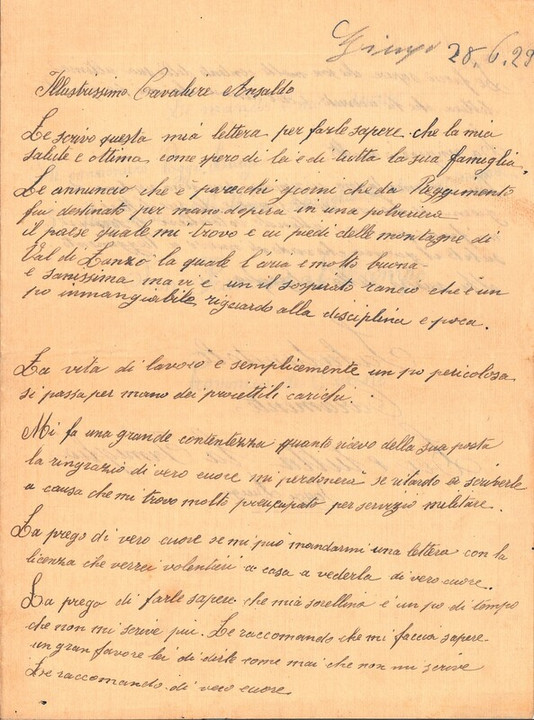 28.6.29
Illustrissimo. Cavaliere Ansaldo
Le scrivo questa mia lettera per farle sapere che la mia
salute e ottima come spero di lei e di tutta la sua famiglia.
Le annuncio che e parecchi giorni che da Reggimento
fui destinato per mano dopera in una polveriera
il paese quale mi trovo e ai piedi delle montagne di
Val di Lanzo la quale l'aria e molto buona
e sanissima ma vi è un il sospirato rancio che è un
po inmangiabile riguardo alla disciplina e poca.
La vita di lavoro e semplicemente un po pericolosa
si passa per mano dei proiettili carichi.
Mi fa una grande contentezza quanto ricevo della sua posta
la ringrazio di vero cuore mi perdonerà se ritardo a scriverle
a causa che mi trovo molto preucupato per servizio militare.
La prego di vero cuore se mi può mandarmi una lettera con la
licenza che verrei volentieri a casa a vederla di vero cuore.
La prego di farle sapere che mia sorellina è un po di tempo
che non mi scrive più. Le raccomando che mi faccia sapere
un gran favore lei di dirle come mai che non mi scrive
Le raccomando di vero cuore